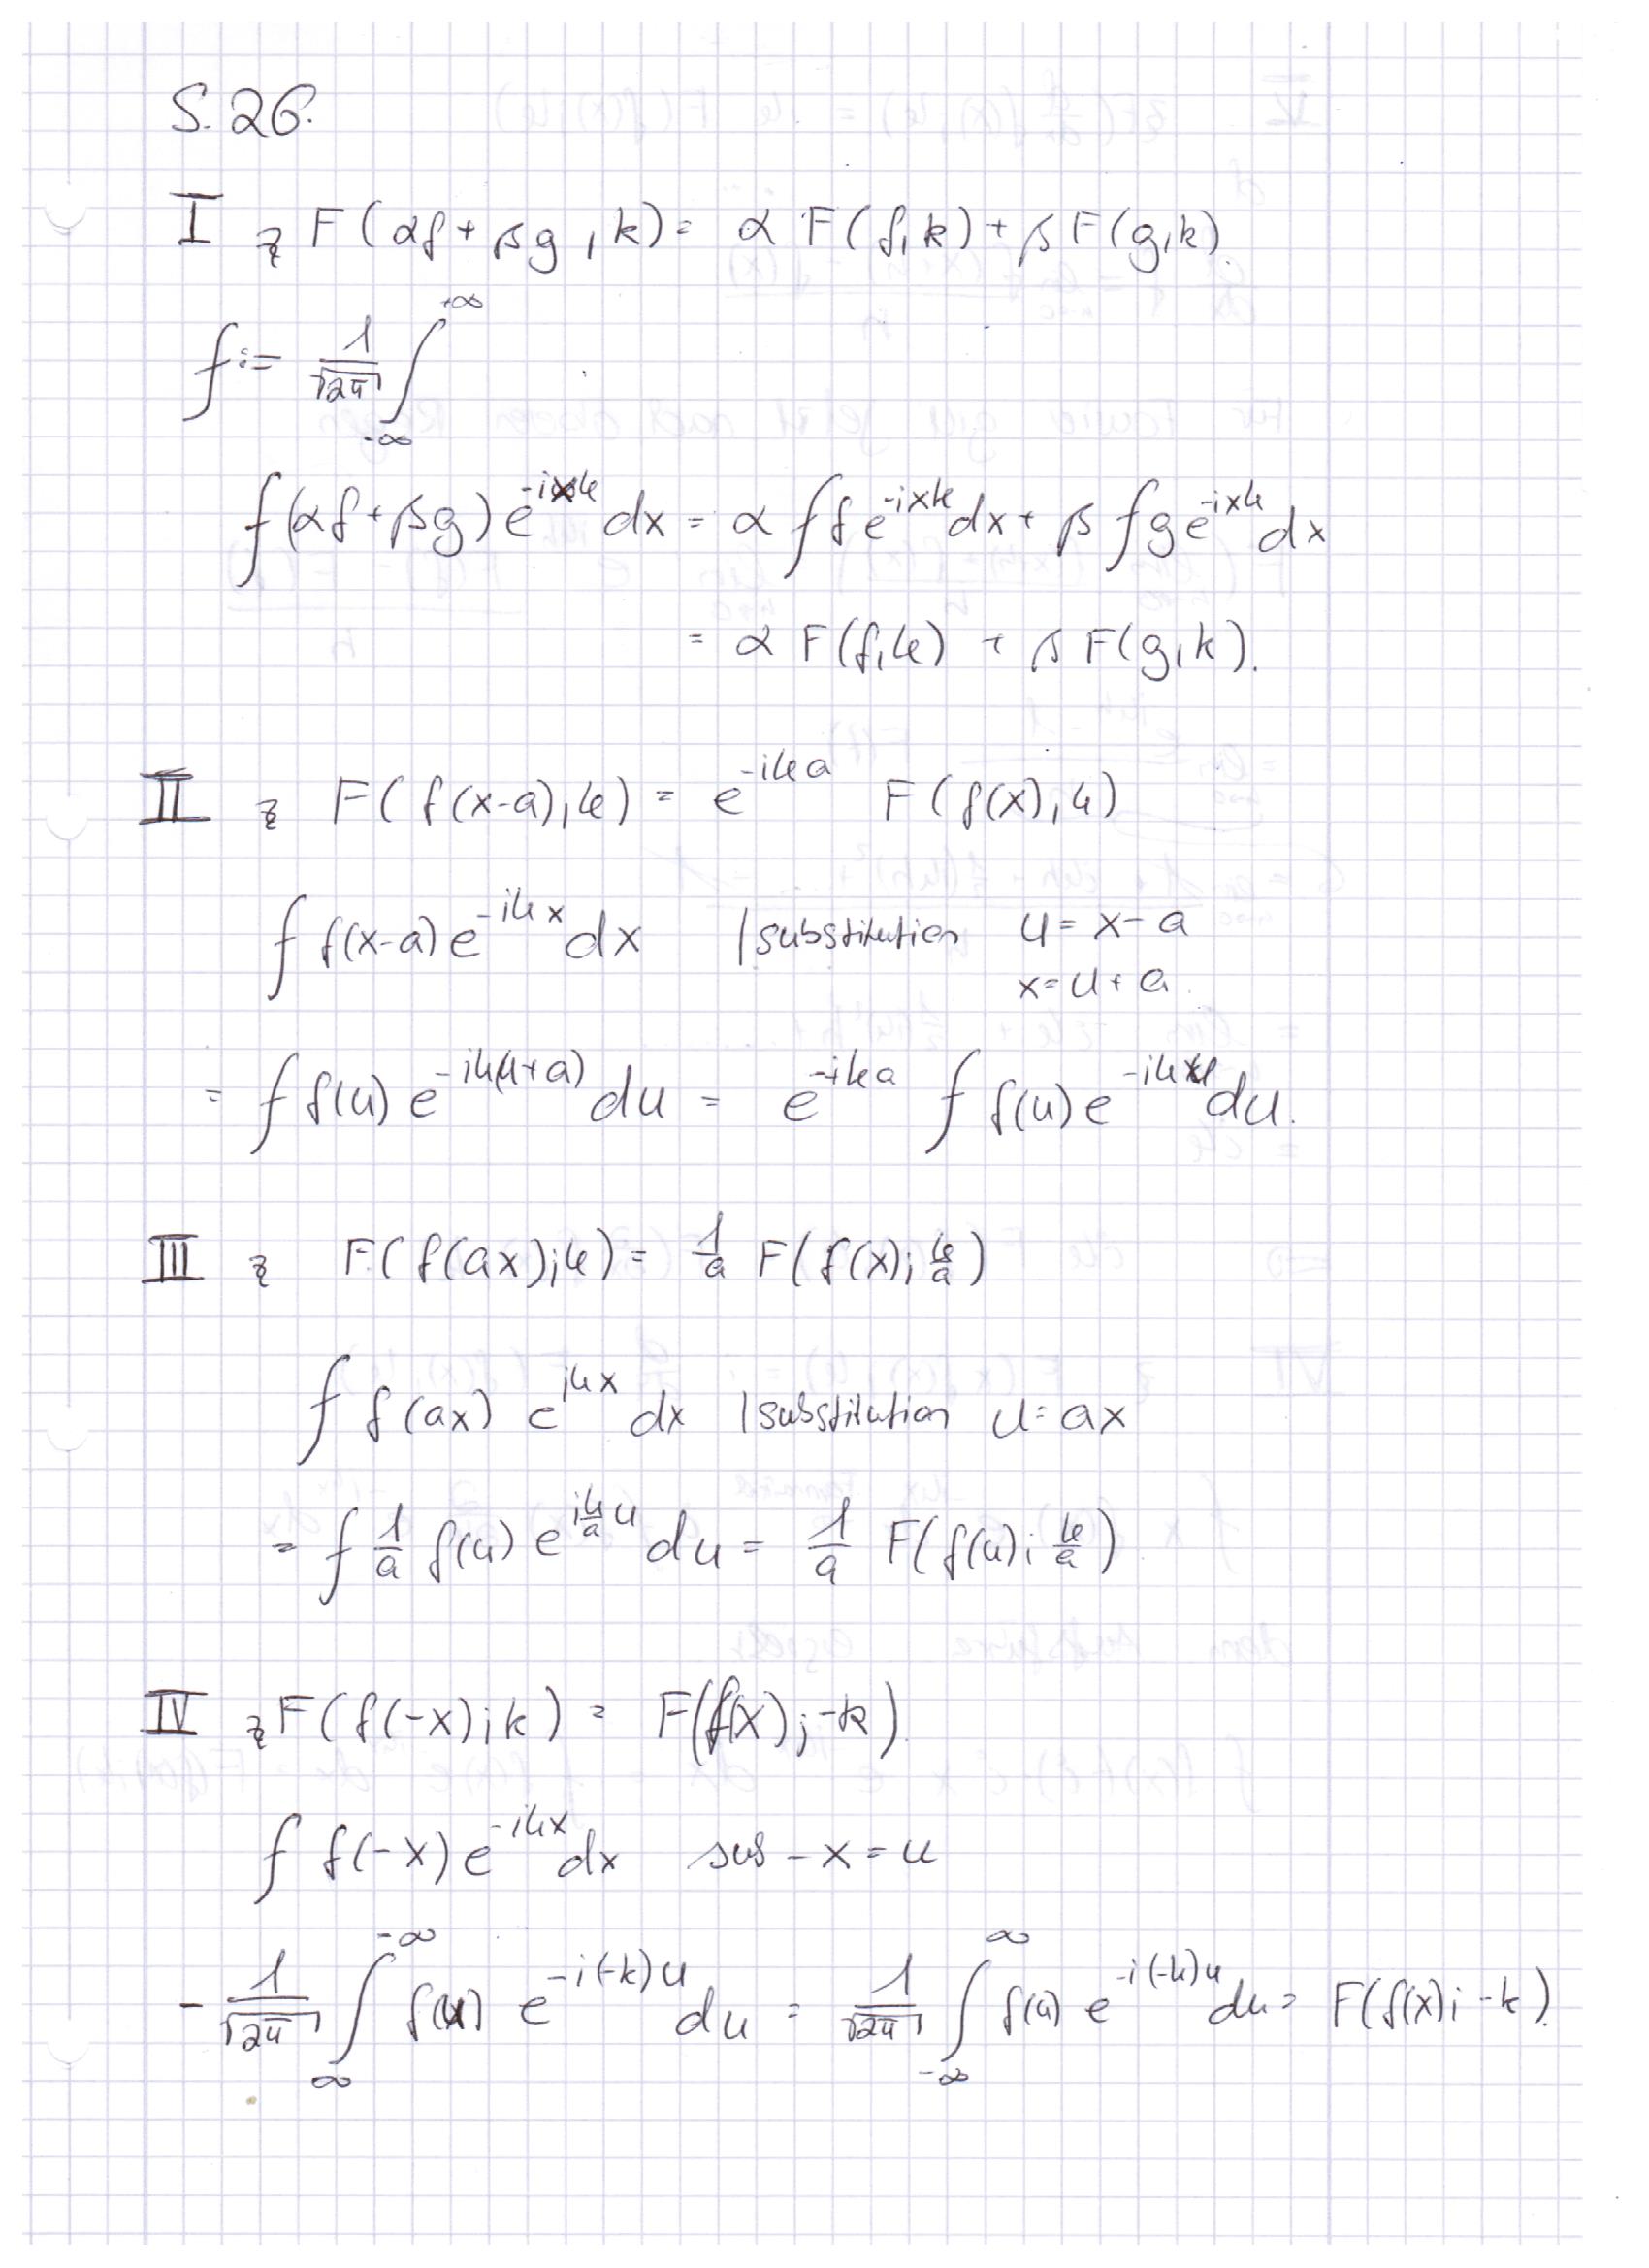 S. 26.
I zz F(αf + βg, k) = α F(f, k) + β F(g, k).
⨍ := 1/√2π ∫_{-∞}^{+∞}
⨍ (αf + βg) e^{-ixk} dx = α ⨍ f e^{-ixk} dx + β ⨍ g e^{-ixk} dx
= α F(f, k) + β F(g, k).
II zz F(f(x-a), k) = e^{-ika} F(f(x), k)
⨍ f(x-a) e^{-ikx} dx | substitution u = x - a
x = u + a
= ⨍ f(u) e^{-ik(u+a)} du = e^{-ika} ⨍ f(u) e^{-iku} du.
III zz F(f(ax); k) = 1/a F(f(x); k/a)
⨍ f(ax) e^{ikx} dx | substitution u = ax
= ⨍ 1/a f(u) e^{i k/a u} du = 1/a F(f(u); k/a)
IV zz F(f(-x); k) = F(f(x); -k)
⨍ f(-x) e^{-ikx} dx sub -x = u
- 1/√2π ∫_{∞}^{-∞} f(u) e^{-i(-k)u} du = 1/√2π ∫_{-∞}^{∞} f(u) e^{-i(-k)u} du = F(f(x); -k).